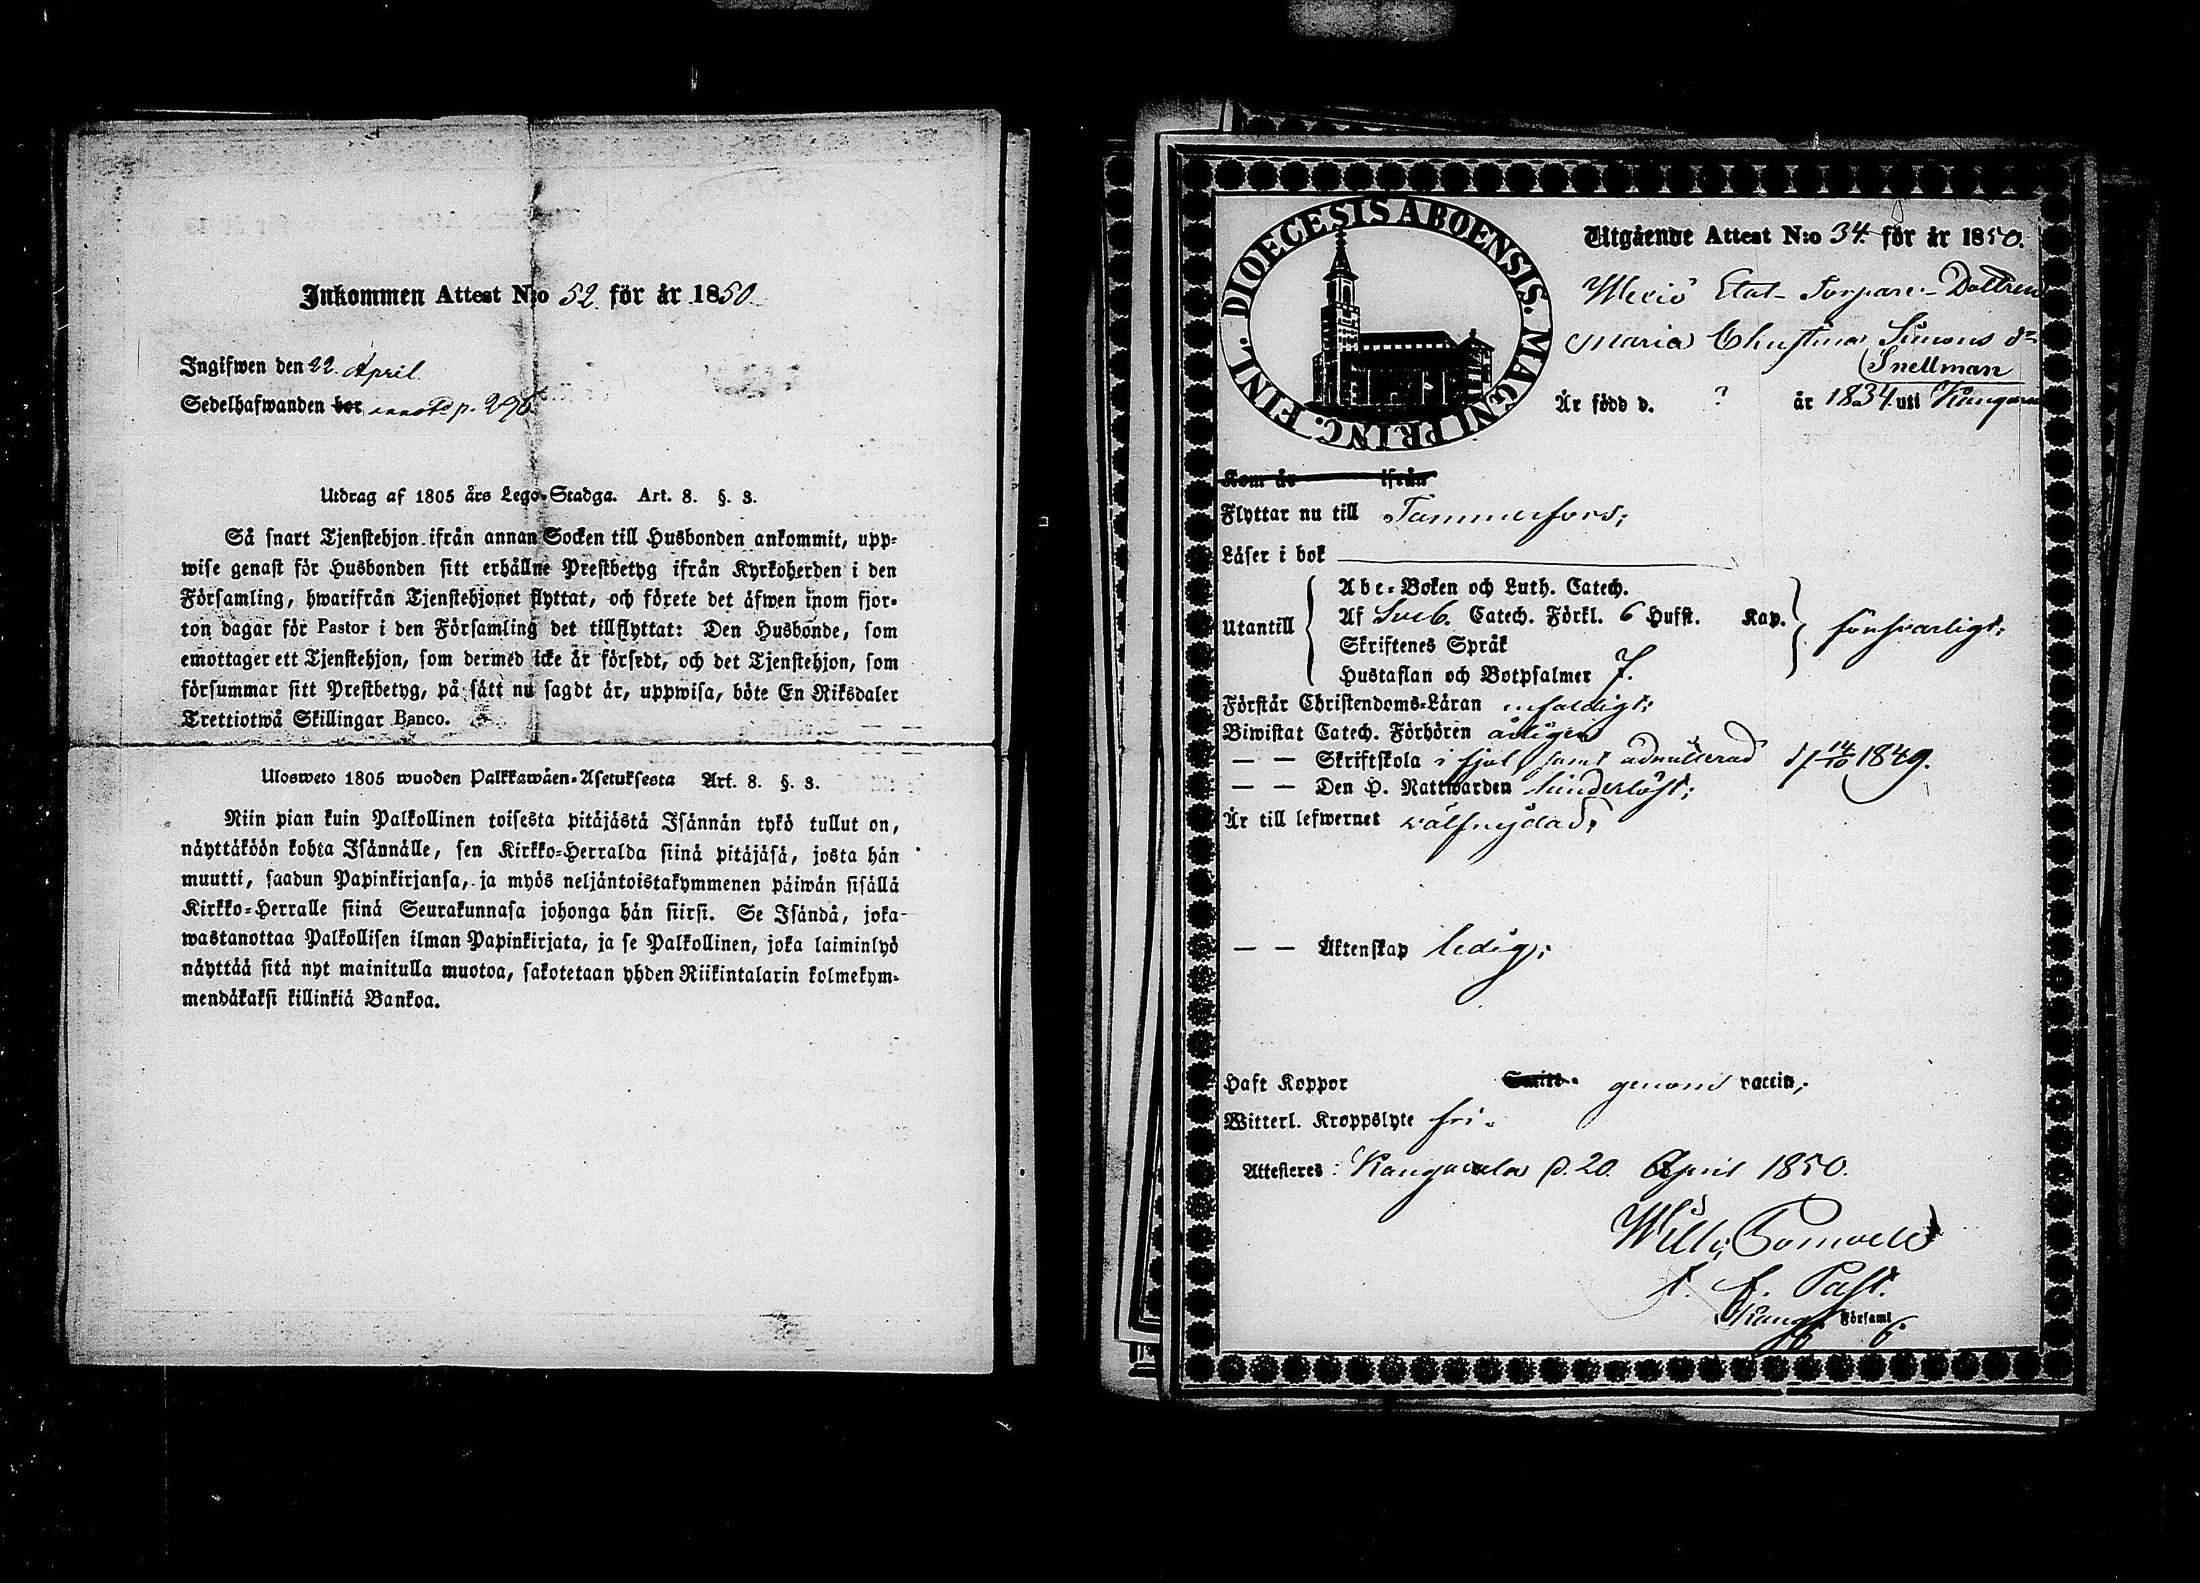 Inkommen Attest N:o 52. för år 1850.
Ingifwen den 22. April.
Sedelhafwanden bor p. 296
Utdrag af 1805 års Lego-Stadga. Art. 8. §. 3.
Så snart Tjenstehjon ifrån annan Socken till Husbonden ankommit, upp-
wise genast för Husbonden sitt erhållne Prestbetyg ifrån Kyrkoherden i den
Församling, hwarifrån Tjenstehjonet flyttat, och förete det äfwen inom fjor-
ton dagar för Pastor i den Församling det tillflyttat: Den Husbonde, som
emottager ett Tjenstehjon, som dermed icke är försedt, och det Tjenstehjon, som
försummar sitt Prestbetyg, på sätt nu sagdt är, uppwisa, böte En Riksdaler
Trettiotwå Skillingar Banco.
Ulosweto 1805 wuoden Palkkawäen-Asetuksesta Art. 8. §. 3.
Niin pian kuin Palkollinen toisesta pitäjästä Isännän tykö tullut on,
näyttäköön kohta Isännälle, sen Kirkko-Herralda siinä pitäjäsä, josta hän
muutti, saadun Papinkirjansa, ja myös neljäntoistakymmenen päiwän sisällä
Kirkko-Herralle siinä Seurakunnasa johonga hän siirsi. Se Isändä, joka
wastanottaa Palkollisen ilman Papinkirjata, ja se Palkollinen, joka laiminlyö
näyttää sitä nyt mainitulla muotoa, sakotetaan yhden Riikintalarin kolmekym-
mendäkaksi killinkiä Bankoa.
DIOECESIS ABOENSIS. MAGNI PRINC. FINL.
Utgående Attest N:o 34. för år 1850.
Wexiö Etat-Torpare-Dottren
Maria Christina Simons dr
Snellman
Är född d. ? år 1834 uti Kangasa
Kom år ifrån
Flyttar nu till Tammerfors;
Läser i bok
Utantill
Abc-Boken och Luth. Catech.
Af Sveb. Catech. Förkl. 6 Hufst. Kap.
Skriftenes Språk
Hustaflan och Botpsalmer 7.
försvarligt;
Förstår Christendoms-Läran enfaldigt;
Biwistat Catech. Förhören årligen
— — Skriftskola i fjol, samt admitterad d. 14/10 1849.
— — Den H. Nattwarden hinderlöst;
Är till lefwernet välfrejdad;
— — Äktenskap ledig;
Haft Koppor genom vaccin;
Witterl. Kroppslyte fri.
Attesteres: Kangasala d. 20. April 1850.
Wilh.
t. f. Past.
Kang. Församl.